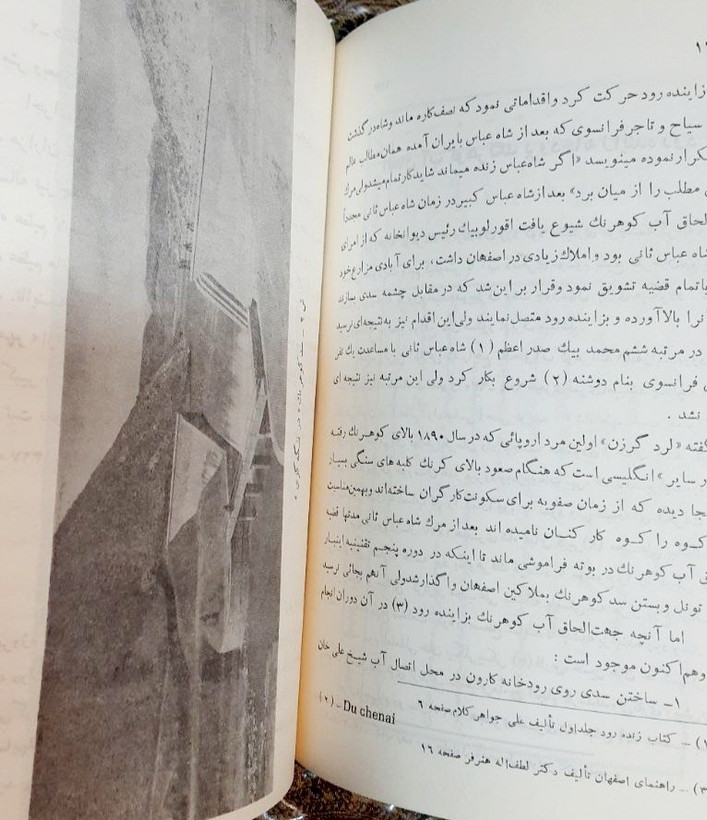 زاینده رود حرکت کرد و اقداماتی نمود که نصف‌کاره ماند و شاه‌در گذشت
سیاح و تاجر فرانسوی که بعد از شاه عباس بایران آمده همان مطالب عالم
نموده مینویسد «اگر شاه‌عباس زنده میماند شاید کار تمام میشد ولی مرگ
مطلب را از میان برد» بعد از شاه عباس کبیر در زمان شاه عباس ثانی مجدداً
الحاق آب کوهرنك شیوع یافت اقورلوبیك رئیس دیوانخانه که از امرای
شاه عباس ثانی بود و املاك زیادی در اصفهان داشت، برای آبادی مزارع خود
باتمام قضیه تشویق نمود وقرار بر این‌شد که در مقابل چشمه سدی بسازند
را بالا آورده و بزاینده رود متصل نمایند ولی این اقدام نیز به نتیجه‌ای نرسید
در مرتبه ششم محمد بیك صدر اعظم (۱) شاه عباس ثانی با مساعدت یك نفر
فرانسوی بنام دوشنه (۲) شروع بکار کرد ولی این مرتبه نیز نتیجه ای
نشد .
گفته «لرد گرزن» اولین مرد اروپائی که در سال ۱۸۹۰ بالای کوهرنك رفته
سایر » انگلیسی است که هنگام صعود بالای کرنك کلبه های سنگی بسیار
دیده که از زمان صفویه برای سکونت کارگران ساخته‌اند و بهمین‌مناسبت
کوه را کوه کار کنان نامیده اند بعد از مرك شاه عباس ثانی مدتها قضیه
آب کوهرنك در بوته فراموشی ماند تا اینکه در دوره پنجم تقنینیه
تونل و بستن سد کوهرنك بملاکین اصفهان واگذار شد ولی آنهم بجائی نرسید
اما آنچه جهت الحاق آب کوهرنك بزاینده رود (۳) در آن دوران انجام
وهم اکنون موجود است :
۱ــ ساختن سدی روی رودخانه کارون در محل اتصال آب شیخ علی خان
ـ کتاب زنده رود جلد اول تألیف علی جواهر کلام صفحه ۶
(۲) ـ Du chenai
ـ راهنمای اصفهان تألیف دکتر لطف‌اله هنرفر صفحه ۱۶